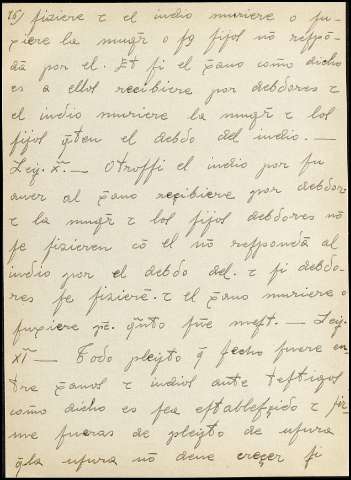 26) fiziere τ el indio muriere o fu-
xiere la mugr̃ o sꝯ fijos nõ respõ-
dã por el. Et si el xp̃ano como dicho
es a ellos recibiere por debdores τ
el indio muriere la mugr̃ τ los
fijos q̃ten el debdo del indio. —
Ley. x̃. — Otrossi el indio por su
auer al xp̃ano reçibiere por debdor
τ la mugr̃ τ los fijos debdores nõ
se fizieren cõ el nõ respondã al
indio por el debdo del. τ si debdo-
res se fizierẽ. τ el xp̃ano muriere o
fuxiere
— Ley.
XĨ — Todo pleyto q̃ fecho fuere en-
tre xp̃anos τ indios ante testigos
como dicho es sea establesçido τ fir-
me fueras de pleyto de usura
q̃ la usura nõ deue creçer si